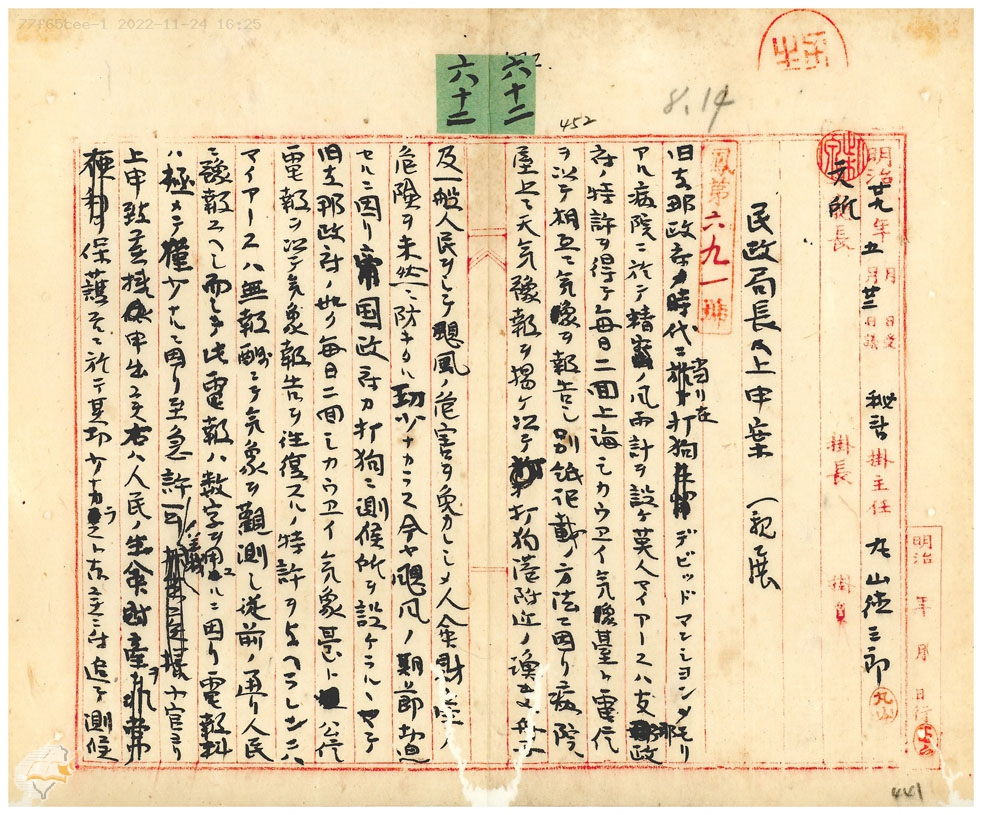 77f65cee-1 2022-11-24 16:25
六十二
六十二
452
8.14
明治 年 月 日
明治廿九年五月廿三日
秘書掛主任 丸山徳三郎
所長
掛長
掛員
民政局長ヘ上申案 親展
鳳第六九一號
旧支那政府ノ時代ニ当リ在打狗デビッドマンションメモリ
アル病院ニ於テ精密ノ風雨計ヲ設ケ英人マイアースハ支那政
府ノ特許ヲ得テ毎日二回上海シカウエイ気象臺ヘ電信
ヲ以テ相互ニ気象ヲ報告シ別紙記載ノ方法ニ因リ病院
屋上ニ天気豫報ヲ揚ケ以テ打狗港附近ノ漁夫
及一般人民ヲシテ颶風ノ危害ヲ免カレシメ人命財産ノ
危険ヲ未然ニ防キタル功少ナカラス今ヤ颶風ノ期節
セルニ因リ帝国政府カ打狗ニ測候所ヲ設ケラルヽマテ
旧支那政府ノ如ク毎日二回シカウエイ気象臺ト公信
電報ヲ以テ気象報告ヲ往復スルノ特許ヲ与ヘラレンニハ
マイアースハ無報酬ニテ気象ヲ観測シ従前ノ通リ人民
ニ豫報スヘシ而シテ此電報ハ数字ヲ用ユルニ因リ電報料
ハ極メテ僅少ナルニ因リ至急許可ノ儀官ヨリ
上申致呉様申出候右ハ人民ノ生命財産ヲ非常
保護スルニ於テ其功少ナカラスト存候ニ付追テ測候
441